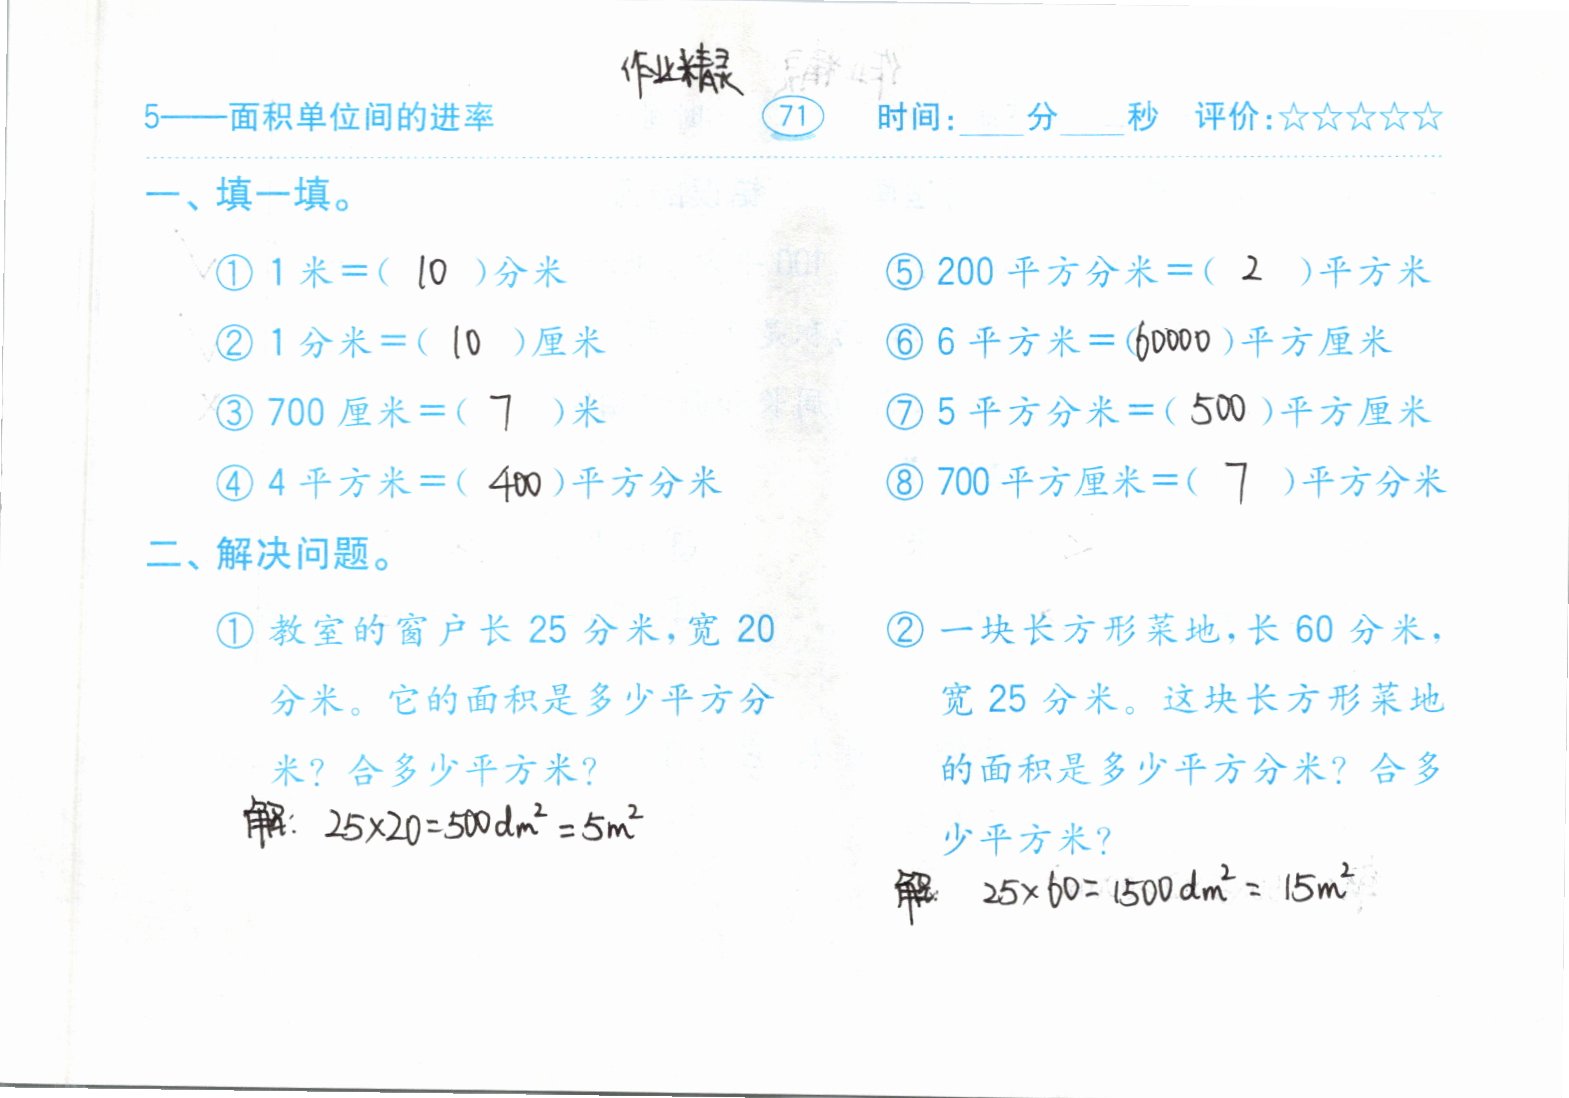 作业精灵
5——面积单位间的进率 71 时间:____分____秒 评价:☆☆☆☆☆
一、填一填。
① 1 米=( 10 )分米
② 1 分米=( 10 )厘米
③ 700 厘米=( 7 )米
④ 4 平方米=( 400 )平方分米
⑤ 200 平方分米=( 2 )平方米
⑥ 6 平方米=(60000)平方厘米
⑦ 5 平方分米=( 500 )平方厘米
⑧ 700 平方厘米=( 7 )平方分米
二、解决问题。
① 教室的窗户长 25 分米,宽 20
分米。它的面积是多少平方分
米? 合多少平方米?
解: 25×20=500dm²=5m²
② 一块长方形菜地,长 60 分米,
宽 25 分米。这块长方形菜地
的面积是多少平方分米? 合多
少平方米?
解: 25×60=1500dm²=15m²